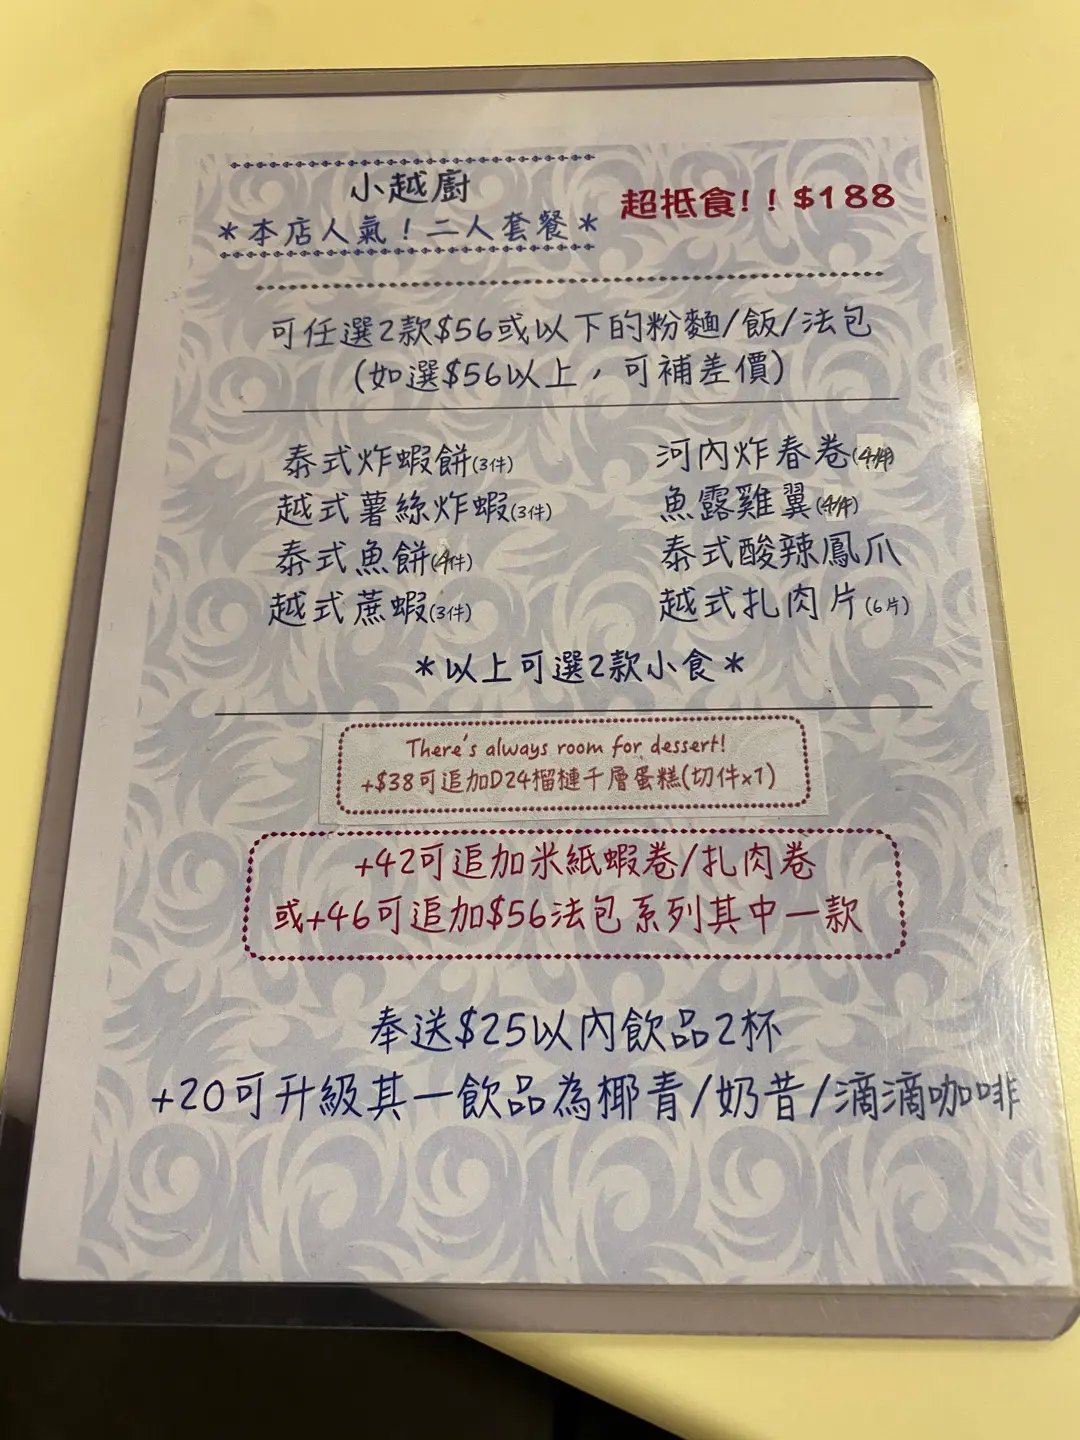 小越廚
*本店人氣！二人套餐*
超抵食!! $188
可任選2款$56或以下的粉麵/飯/法包
(如選$56以上，可補差價)
泰式炸蝦餅(3件)
越式薯絲炸蝦(3件)
泰式魚餅(4件)
越式蔗蝦(3件)
河內炸春卷(4件)
魚露雞翼(4件)
泰式酸辣鳳爪
越式扎肉片(6片)
*以上可選2款小食*
There's always room for dessert!
+$38可追加D24榴槤千層蛋糕(切件x1)
+42可追加米紙蝦卷/扎肉卷
或+46可追加$56法包系列其中一款
奉送$25以內飲品2杯
+20可升級其一飲品為椰青/奶昔/滴滴咖啡